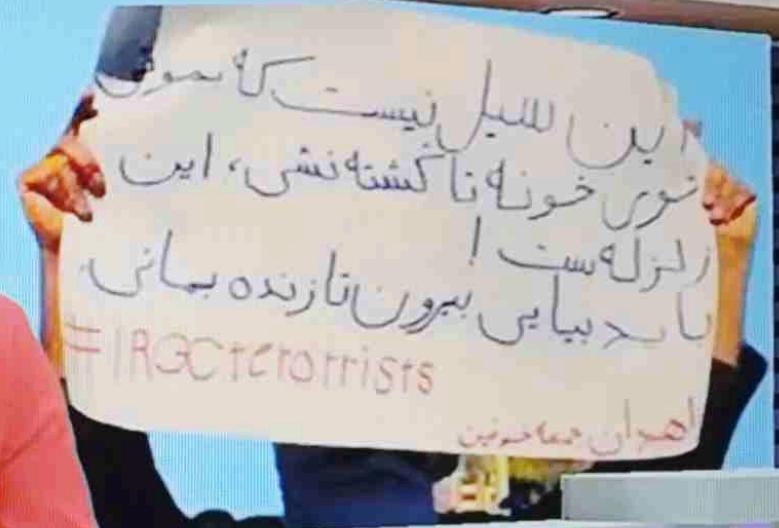 این سیل نیست که بمونی
توی خونه تا کشته نشی، این
زلزله ست!
باید بیایی بیرون تا زنده بمانی.
#IRGCterorrists